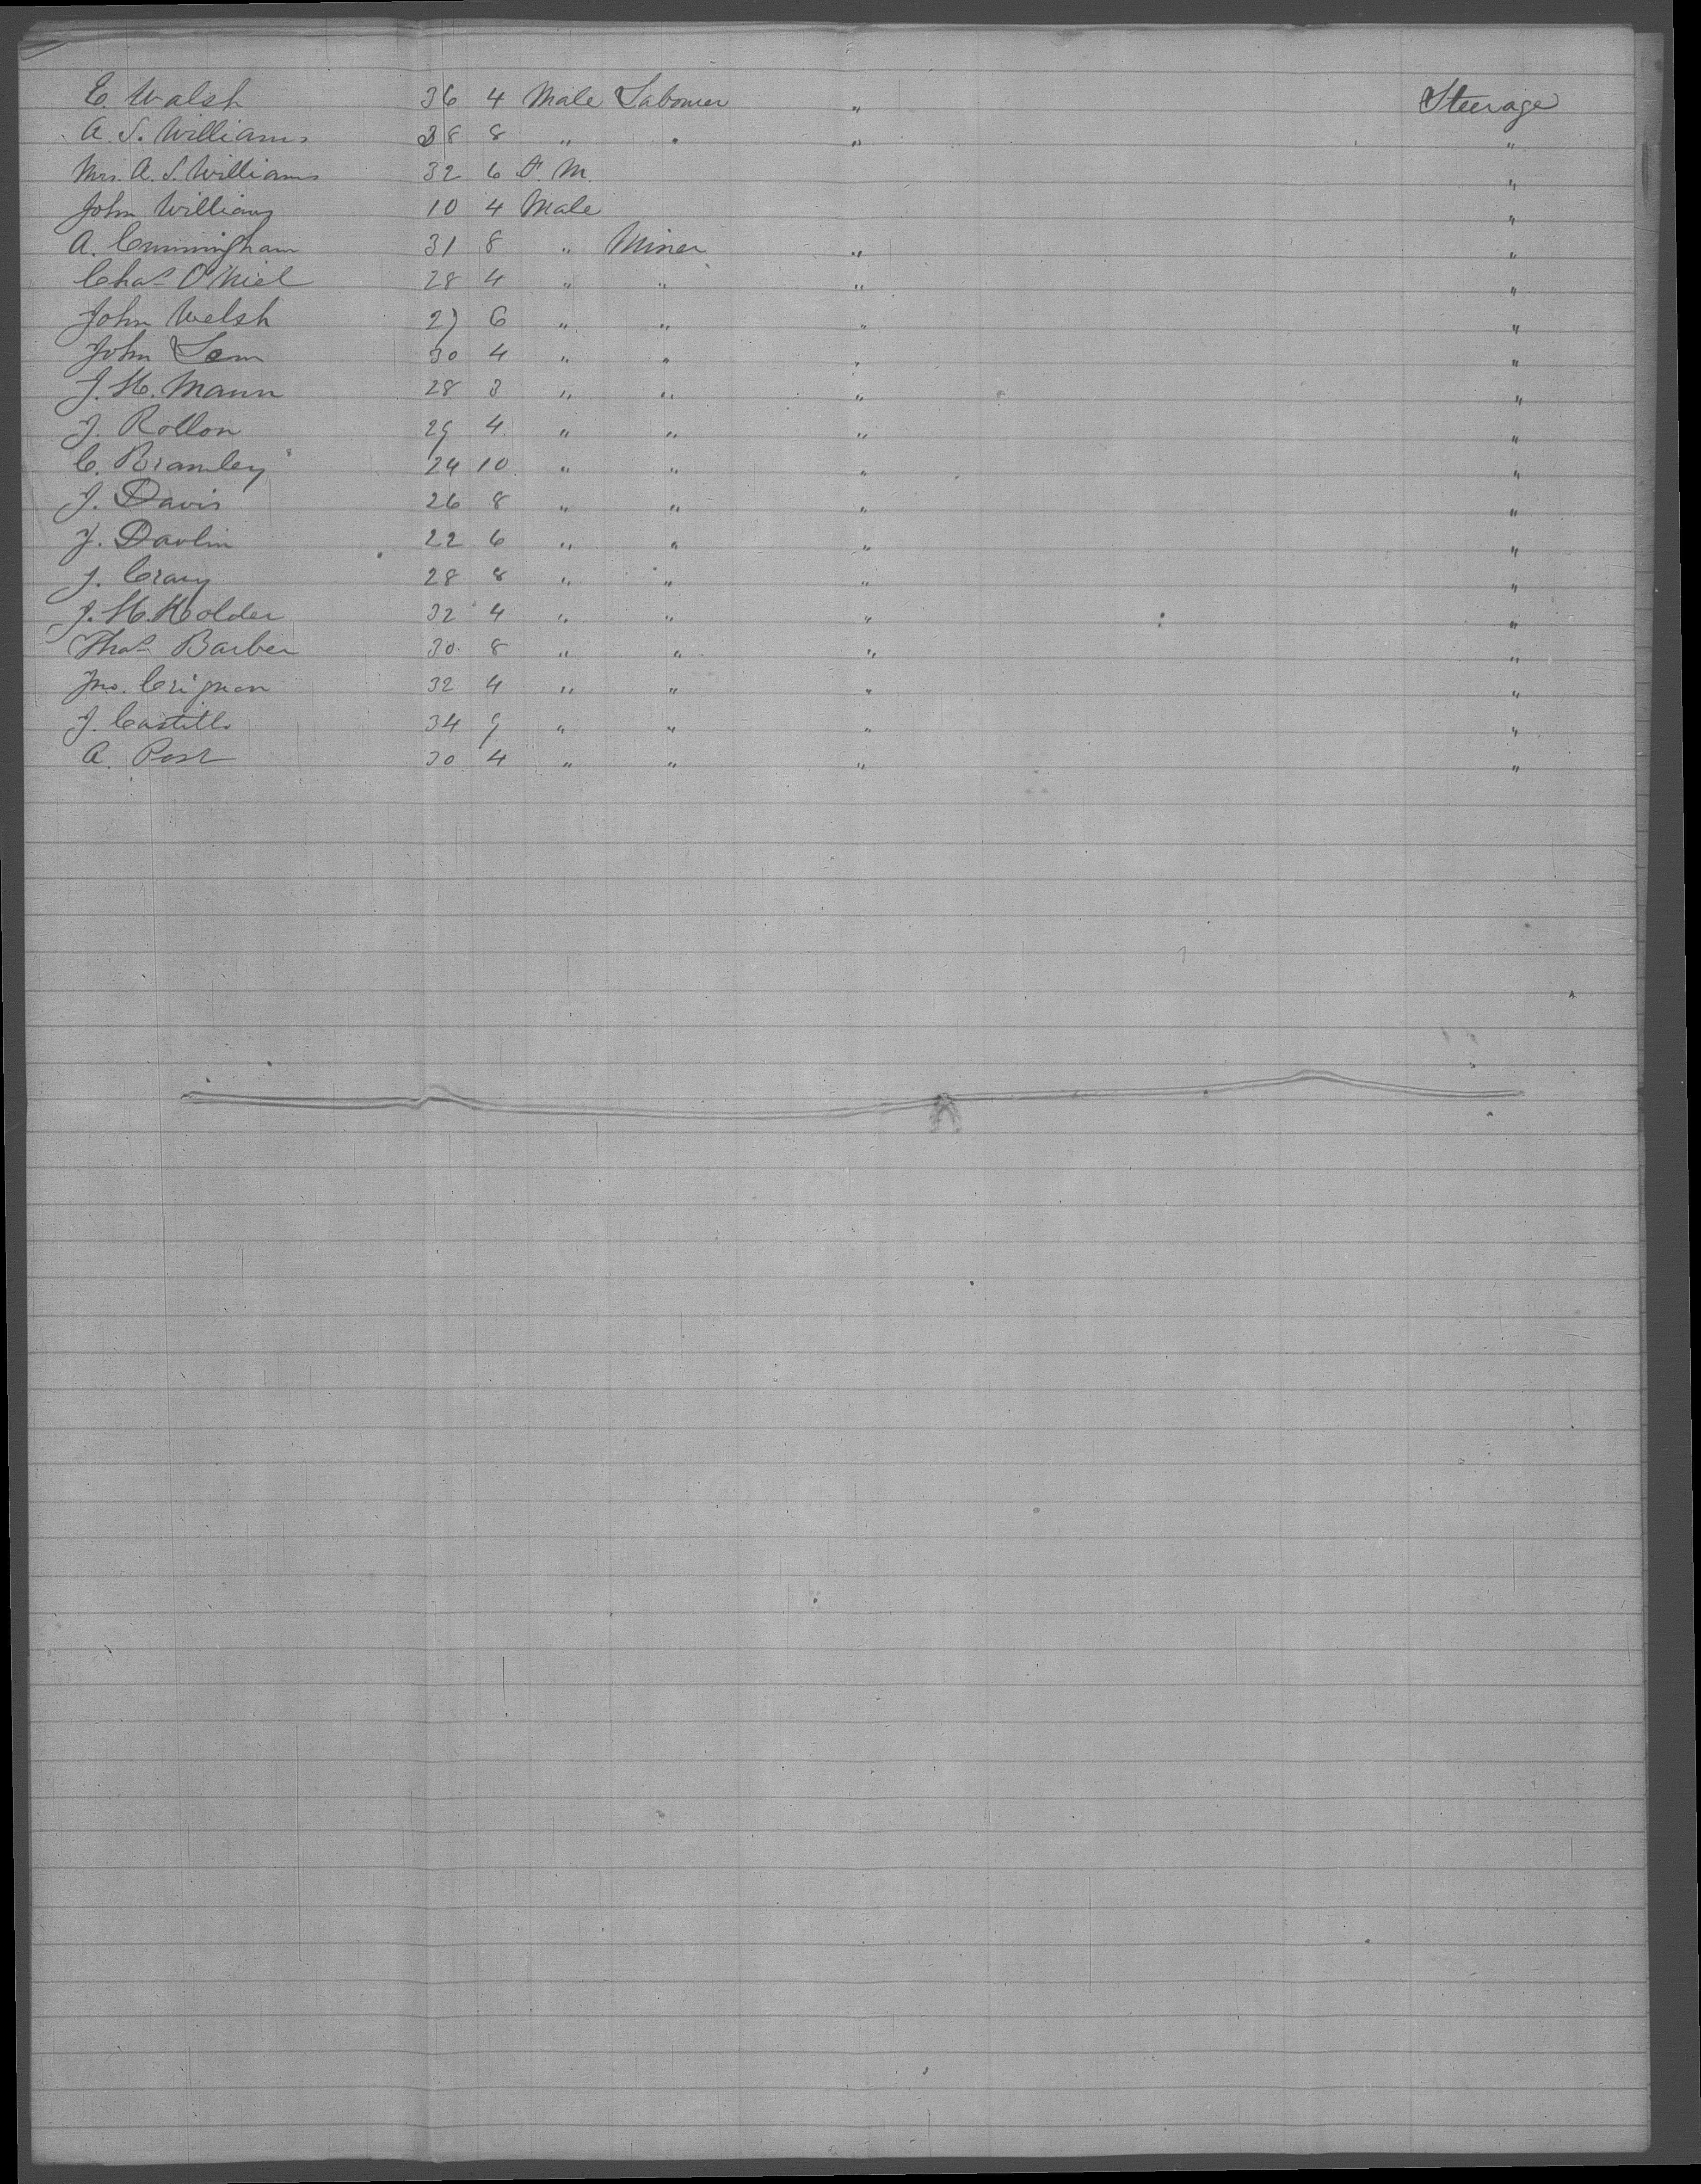 E. Walsh 36 4 Male Labourer " Steerage
A. S. Williams 38 8 " " " "
Mrs. A. S. Williams 32 6 F. M. "
John Williams 10 4 Male "
A. Cunningham 31 8 " Miner " "
Chas O'Niel 28 4 " " " "
John Welsh 27 6 " " " "
John Sam 30 4 " " " "
J. H. Mann 28 3 " " " "
J. Rollon 29 4 " " " "
C. Bramley 24 10 " " " "
J. Davis 26 8 " " " "
J. Davlin 22 6 " " " "
J. Crary 28 8 " " " "
J. H. Holder 32 4 " " " "
Thos Barber 30 8 " " " "
Jno. Crignon 32 4 " " " "
J. Castillo 34 9 " " " "
A. Post 30 4 " " " "